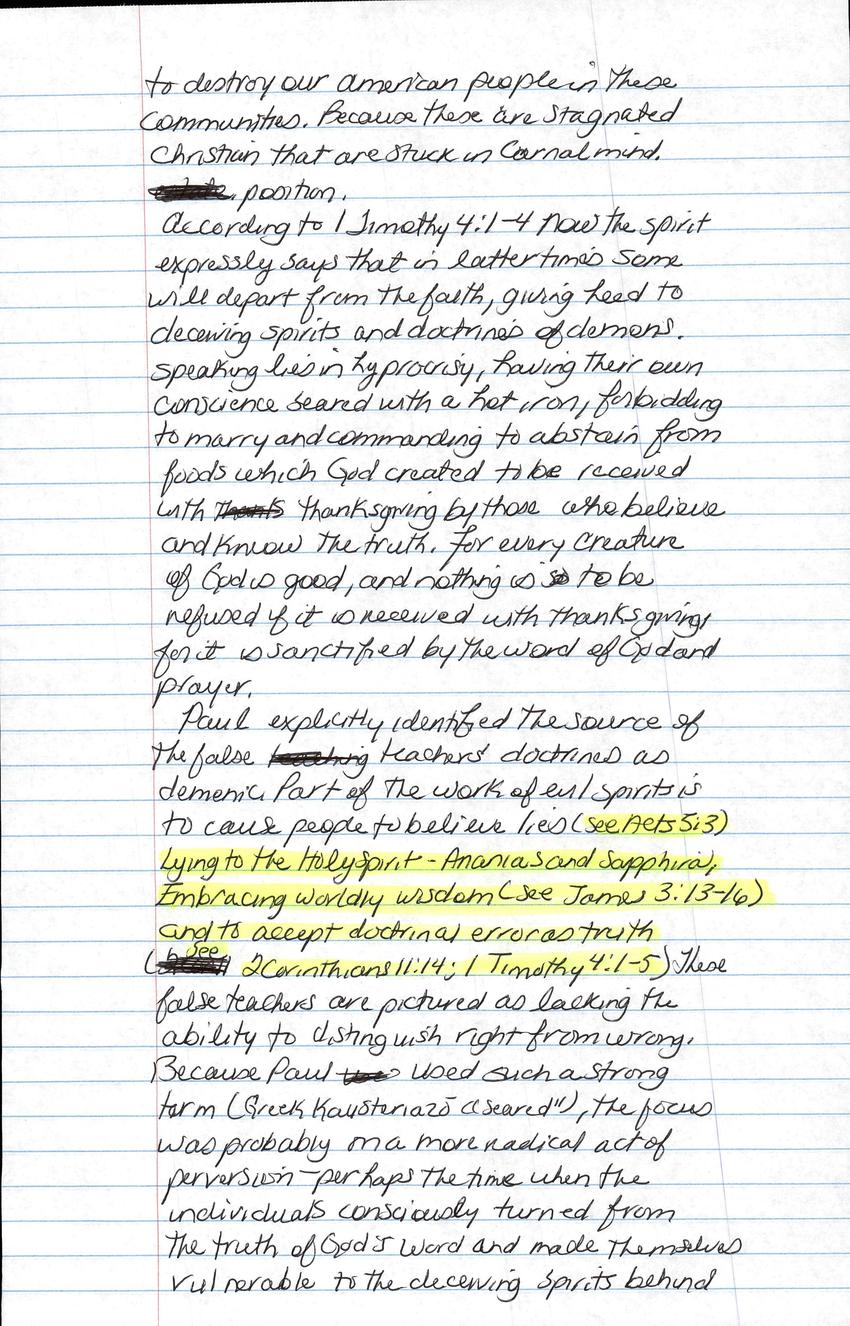 to destroy our american people in these
Communities. Because these are stagnated
Christian that are stuck in Carnal mind.
position.
According to 1 Timothy 4:1-4 Now the spirit
expressly says that in latter times some
will depart from the faith, giving heed to
deceiving spirits and doctrines of demons.
speaking lies in hyprocrisy, having their own
conscience seared with a hot iron, forbidding
to marry and commanding to abstain from
foods which God created to be received
with thanks thanksgiving by those who believe
and know the truth. For every creature
of God is good, and nothing is to be
refused if it is received with thanksgiving,
for it is sanctified by the word of God and
prayer.
Paul explicitly identified the source of
the false teaching teachers' doctrines as
demenic. Part of the work of evil spirits is
to cause people to believe lies (see Acts 5:3)
Lying to the Holy Spirit - Ananias and Sapphira,
Embracing worldly wisdom (see James 3:13-16)
and to accept doctrinal error as truth
(see 2 Corinthians 11:14; 1 Timothy 4:1-5) These
false teachers are pictured as lacking the
ability to distinguish right from wrong.
Because Paul used such a strong
term (Greek Kausteriazō "seared"), the focus
was probably on a more radical act of
perversion - perhaps the time when the
individuals consciously turned from
the truth of God's word and made themselves
vulnerable to the deceiving spirits behind